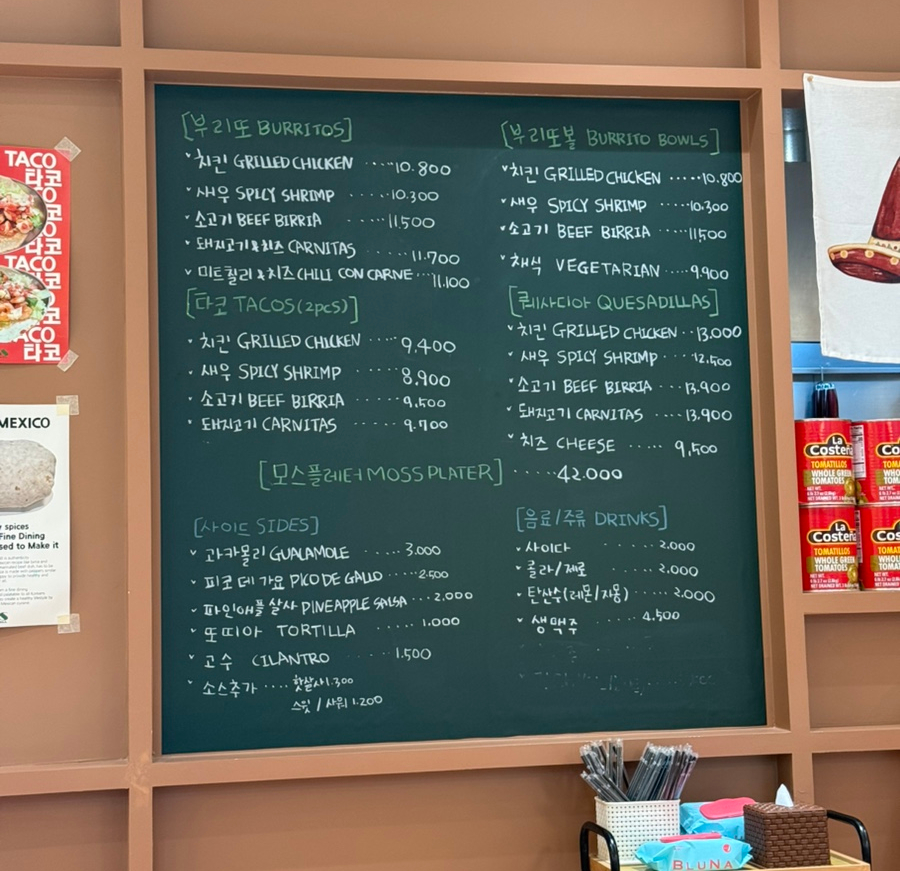 [부리또 BURRITOS]
치킨 GRILLED CHICKEN ····10.800
새우 SPICY SHRIMP ·····10.300
소고기 BEEF BIRRIA ····11.500
돼지고기&치즈 CARNITAS ·····11.700
미트칠리&치즈 CHILI CON CARNE ···11.100
[타코 TACOS(2pcs)]
치킨 GRILLED CHICKEN ····9,400
새우 SPICY SHRIMP ·····8,900
소고기 BEEF BIRRIA ·····9,500
돼지고기 CARNITAS ·····9.700
[부리또볼 BURRITO BOWLS]
치킨 GRILLED CHICKEN ·····10.800
새우 SPICY SHRIMP ····10.300
소고기 BEEF BIRRIA ····11500
채식 VEGETARIAN ····9.900
[퀘사디아 QUESADILLAS]
치킨 GRILLED CHICKEN ··13.000
새우 SPICY SHRIMP ····12,500
소고기 BEEF BIRRIA ···13.900
돼지고기 CARNITAS ····13,900
치즈 CHEESE ····· 9,500
[모스플레터 MOSS PLATER] ·····42.000
[사이드 SIDES]
과카몰리 GUALAMOLE ·····3.000
피코 데 가요 PICO DE GALLO ·····2.500
파인애플 살사 PINEAPPLE SALSA ···2.000
또띠아 TORTILLA ·····1.000
고수 CILANTRO ····1.500
소스추가 ···· 핫살사1.300
스윗 / 사워 1.200
[음료/주류 DRINKS]
사이다 ·····2.000
콜라/제로 ·····2,000
탄산수(레몬/자몽) ····2.000
생맥주 ····4.500
TACO
타코
TACO
타코
MEXICO
spices
Fine Dining
sed to Make it
La Costeña
TOMATILLOS
WHOLE GREEN
TOMATOES
BLUNA